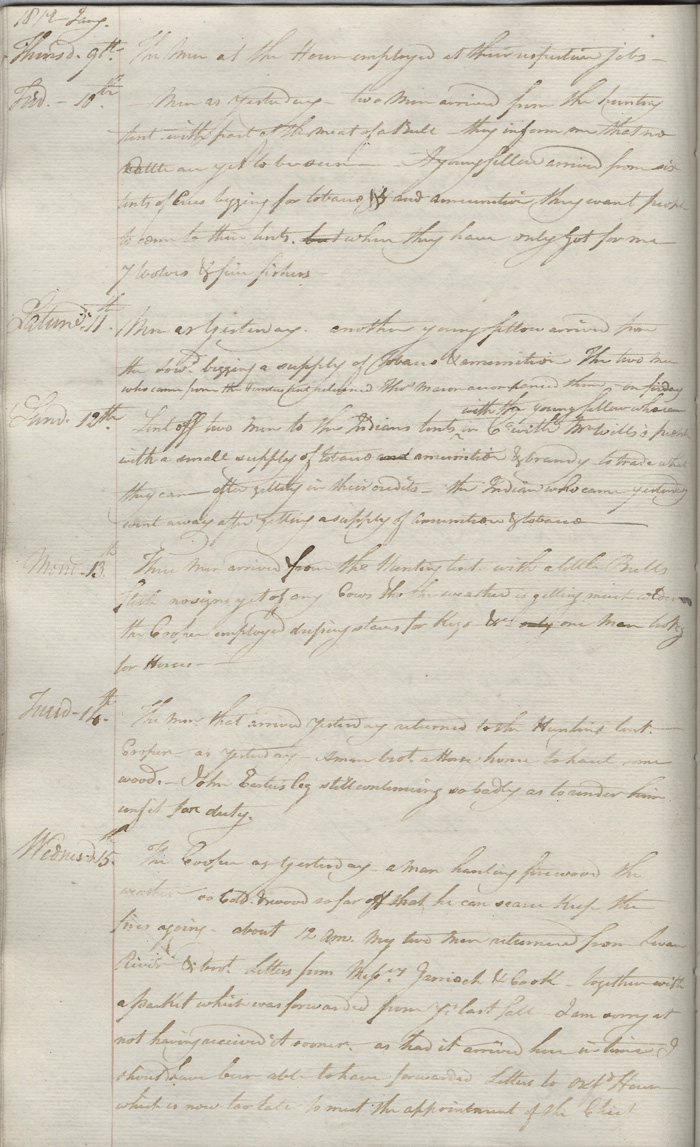 1812 Jany.
Thursd. 9th The Men at the House employed at their respective jobs —
Frid. - 10th Men as Yesterday - two Men arrived from the Hunting
tent with part of the meat of a Bull they inform me that no
Cattle are yet to be seen — A young fellow arrived from six
tents of Crees begging for tobacco and ammunition they want people
to come to their tents. but where they have only got for me
7 Wolves & five fishers —
Saturd. 11th Men as Yesterday. another young fellow arrived from
the begging a supply of Tobacco & ammunition The two men
who came from the Hunting tent returned Thos. accompanied them on friday
with the young fellow who came
Sund. 12th Sent off two Men to the Indians tents in Co. with Mr Wills's people
with a small supply of tobacco and ammunition & brandy to trade what
they can after getting in their credits - the Indian who came yesterday
went away after getting a supply of ammunition & tobacco
Mond. 13th Three Men arrived from the Hunting tent with a little Bulls
flesh no signs yet of any Cows tho the weather is getting much colder
the Cooper employed dressing staves for Kegs - &c only one Man looking
for Horses —
Tuesd. 14th The men that arrived Yesterday returned to the Hunting tent.
Cooper as yesterday - A man brot. a Horse home to haul some
wood. - John leg still continuing so badly as to render him
unfit for duty.
Wednesd. 15th The Cooper as Yesterday - a man hauling firewood the
weather so Cold & wood so far off that he can scarce keep the
fires agoing - about 12 my two Men returned from Swan
River & brot. Letters from Messrs. & Cook - together with
a packet which was forwarded from last fall I am sorry at
not having received it sooner. as had it arrived here in time I
should have been able to have forwarded Letters to House
which is now too late to meet the appointment of the Chief